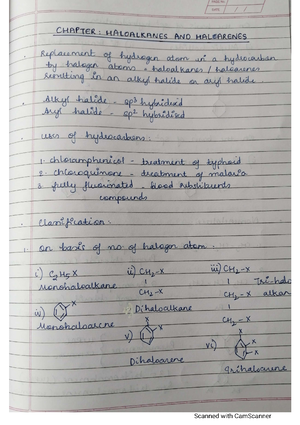 CHAPTER: HALOALKANES AND HALOARENES
Replacement of hydrogen atom in a hydrocarbon
by halogen atoms → haloalkanes / haloarenes
resulting in an alkyl halide or aryl halide
Alkyl halide - sp³ hybridised
Aryl halide - sp² hybridised
Uses of hydrocarbons:
1. chloramphenicol - treatment of typhoid
2. chloroquinone - treatment of malaria
3. fully fluorinated - blood substituents
compounds
Classification:
1. On basis of no of halogen atom:
i) C₂H₅X ii) CH₂-X iii) CH₂-X
Monohaloalkane CH₂-X CH₂-X
Dihaloalkane CH₂-X
iv) X
Monohaloarene
v) X X
Dihaloarene
vi) X X X
Trihaloarene
Scanned with CamScanner